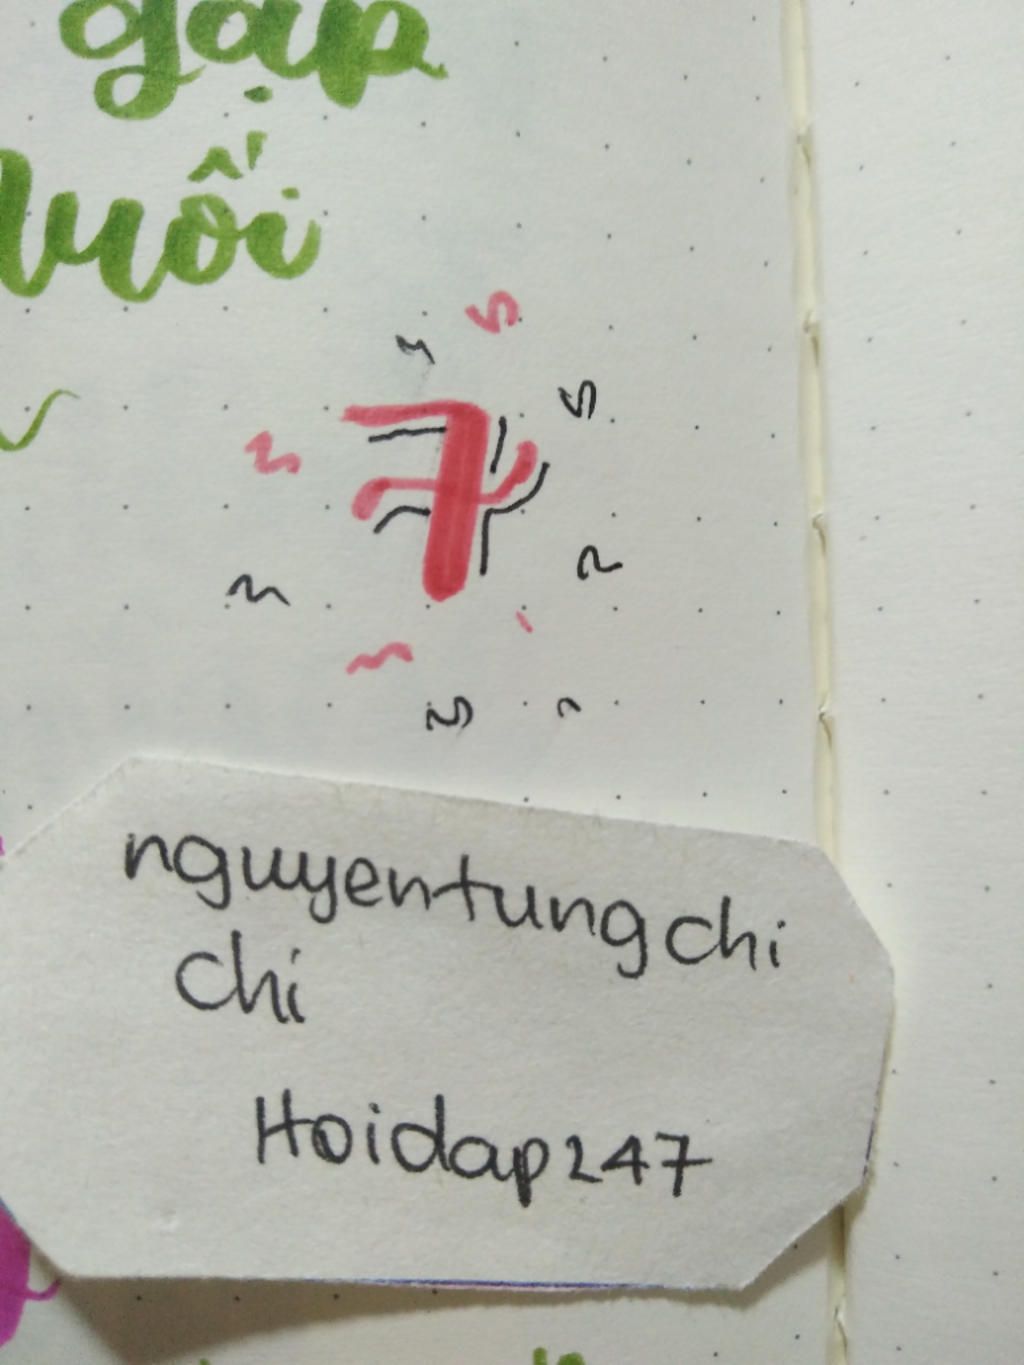 gặp
7
nguyentungchi
chi
Hoidap247